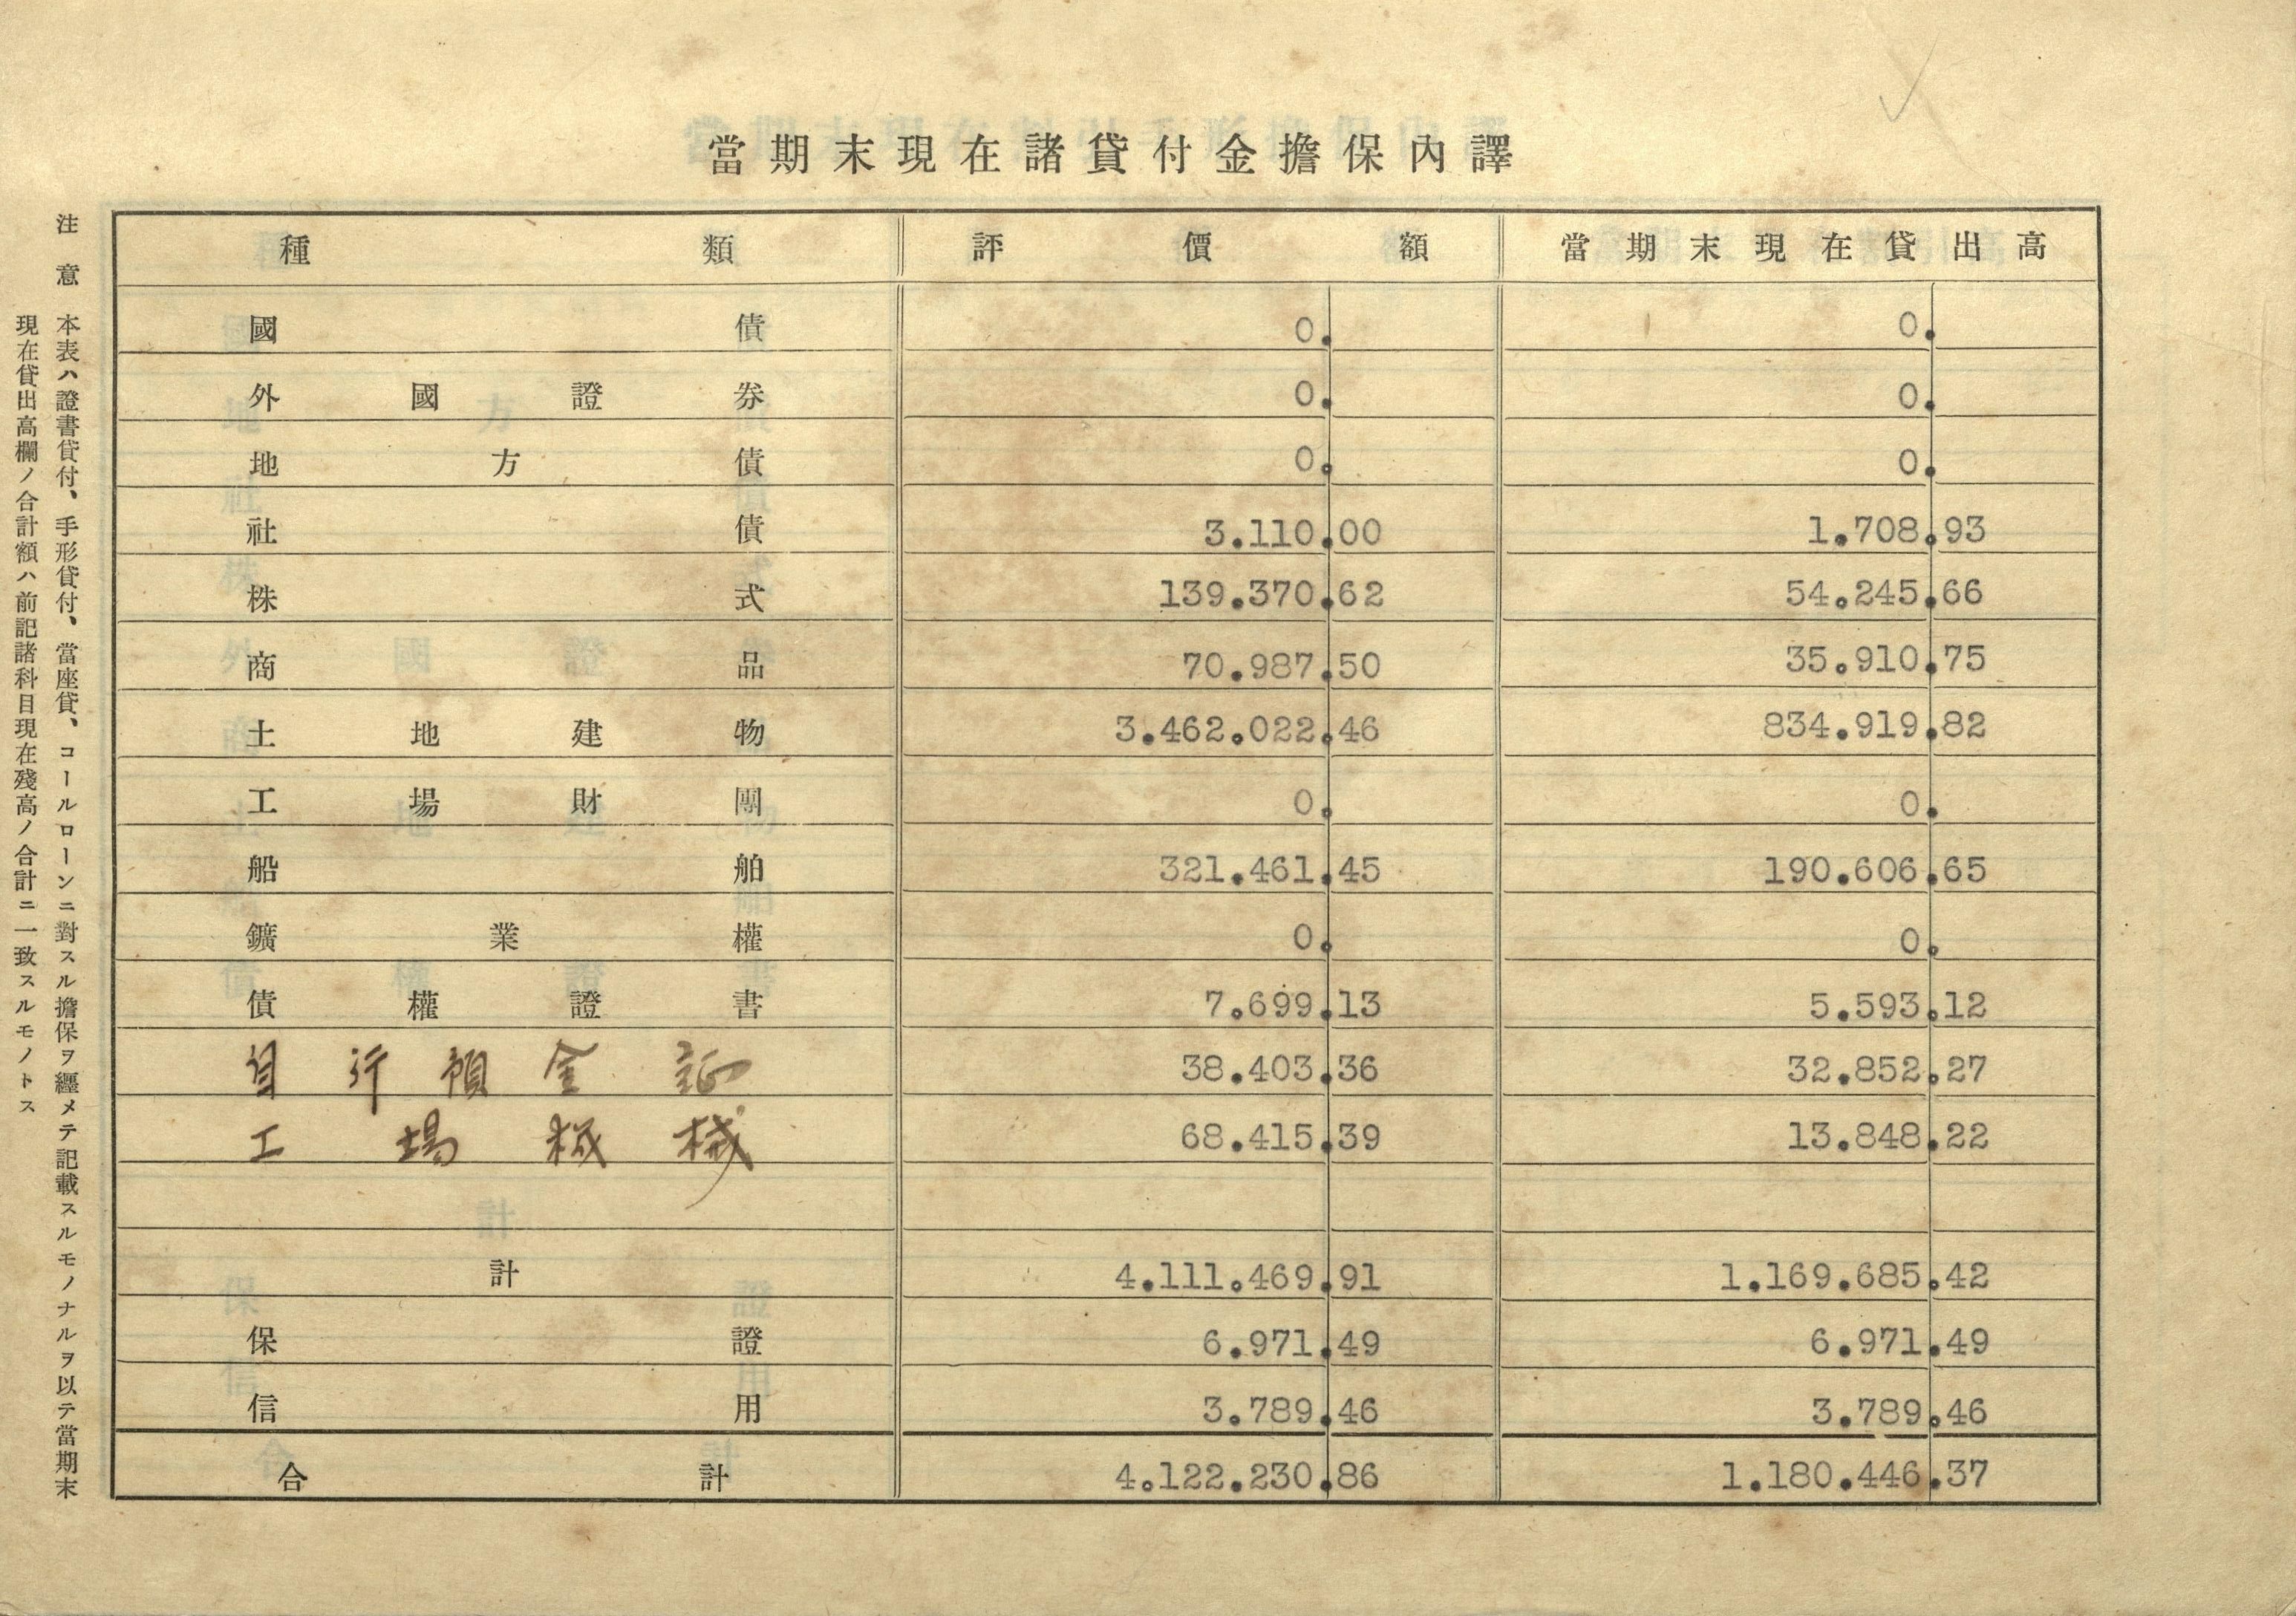 當期末現在諸貸付金擔保內譯
種類 評價額 當期末現在貸出高
國債 0. 0.
外國證券 0. 0.
地方債 0. 0.
社債 3.110.00 1.708.93
株式 139.370.62 54.245.66
商品 70.987.50 35.910.75
土地建物 3.462.022.46 834.919.82
工場財團 0. 0.
船舶 321.461.45 190.606.65
鑛業權 0. 0.
債權證書 7.699.13 5.593.12
自行預金証 38.403.36 32.852.27
工場機械 68.415.39 13.848.22
計 4.111.469.91 1.169.685.42
保證 6.971.49 6.971.49
信用 3.789.46 3.789.46
合計 4.122.230.86 1.180.446.37
注意 本表ハ證書貸付、手形貸付、當座貸、コールローンニ對スル擔保ヲ纒メテ記載スルモノナルヲ以テ當期末
現在貸出高欄ノ合計額ハ前記諸科目現在殘高ノ合計ニ一致スルモノトス